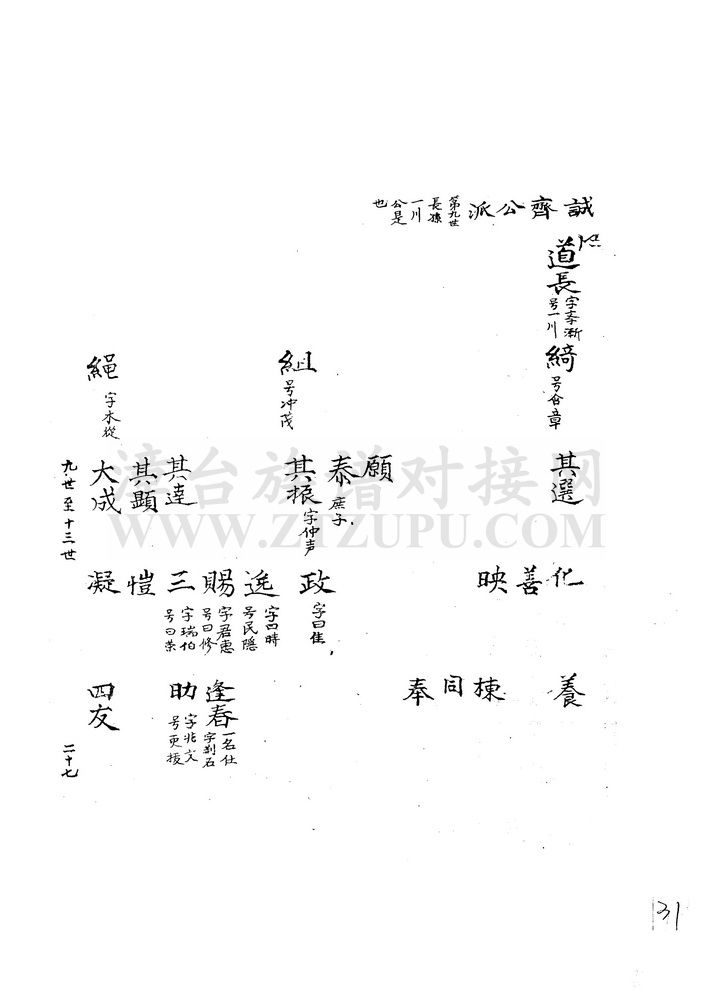 誠齊公派 第九世長孫一川公是也
道長 字奉漸 号一川
綺 号含章
組 号冲茂
繩 字木從
其選
願
泰 庶子
其振 字仲声
其達
其顯
大成
九世至十三世
化
善
映
政 字曰佳
逸 字四時 号民隱
賜 字君惠 号曰修
三 字瑞伯 号曰榮
愷
凝
養
棟
同
奉
逢春 一名仕 字荊石
助 字兆文 号更援
四友
二十七
31
渍台族谱对接网
WWW.ZTZUPU.COM